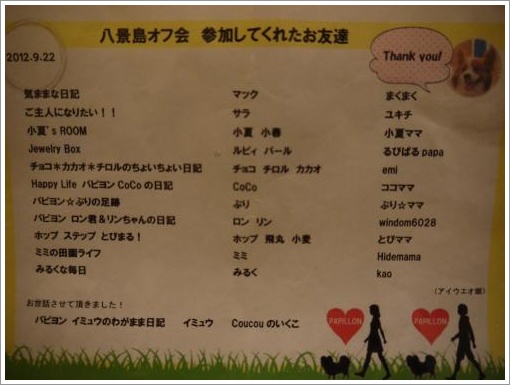 八景島オフ会 参加してくれたお友達
Thank you!
2012.9.22
気ままな日記 マック まくまく
ご主人になりたい！！ サラ ユキチ
小夏's ROOM 小夏 小春 小夏ママ
Jewelry Box ルビィ パール るびぱるpapa
チョコ＊カカオ＊チロルのちょいちょい日記 チョコ チロル カカオ emi
Happy Life パピヨン CoCo の日記 CoCo ココママ
パピヨン☆ぷりの足跡 ぷり ぷり☆ママ
パピヨン ロン君＆リンちゃんの日記 ロン リン windom6028
ホップ ステップ とびまる！ ホップ 飛丸 小麦 とびママ
ミミの田園ライフ ミミ Hidemama
みるくな毎日 みるく kao
（アイウエオ順）
お世話させて頂きました！
パピヨン イミュウのわがまま日記 イミュウ Coucou のいくこ
PAPILLON PAPILLON